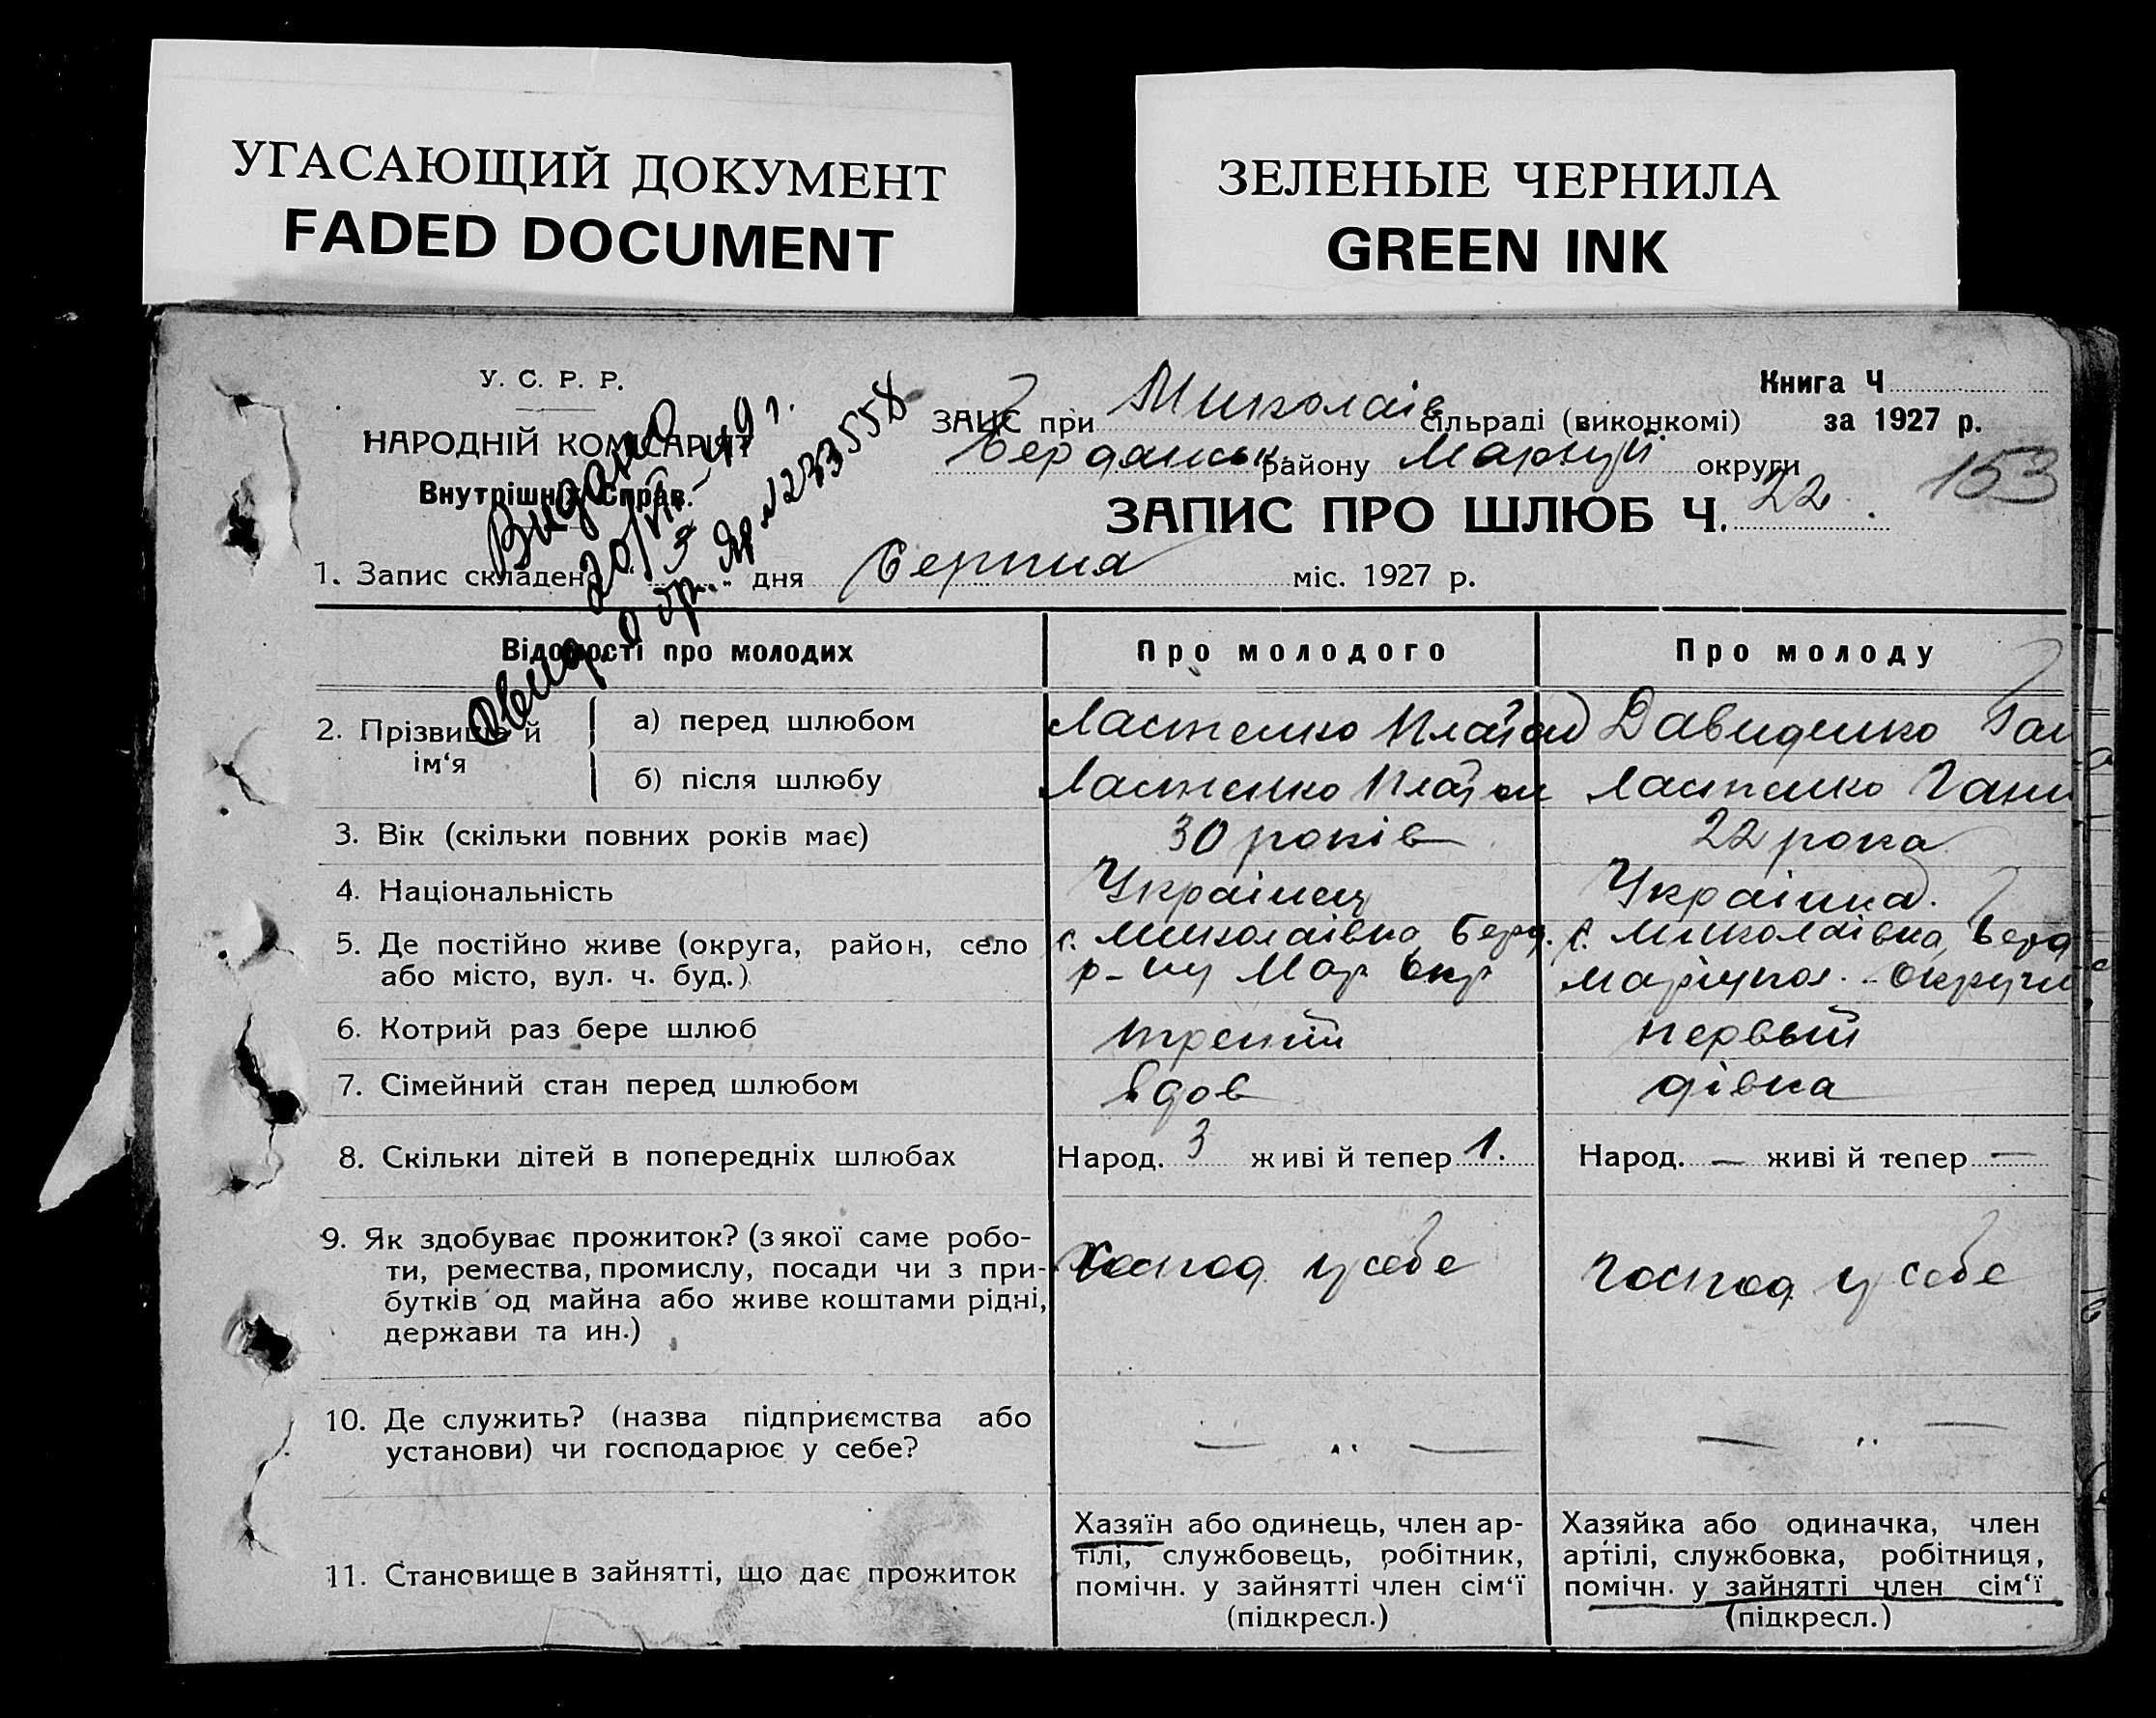 УГАСАЮЩИЙ ДОКУМЕНТ
FADED DOCUMENT
ЗЕЛЕНЫЕ ЧЕРНИЛА
GREEN INK
У. С. Р. Р.
НАРОДНІЙ КОМІСАРІЯТ
Внутрішніх Справ.
Видано
20/VII-49 г.
о бр. № 233558
Книга Ч
ЗАПИС при Миколаів сільраді (виконкомі) за 1927 р.
Бердянськ району Маріуп. округи
153
ЗАПИС ПРО ШЛЮБ Ч. 22.
1. Запис складено "3" дня Серпня міс. 1927 р.
Відомості про молодих
Про молодого
Про молоду
2. Прізвище й ім‘я
а) перед шлюбом
Ластенко Платон
Давиденко Ган
б) після шлюбу
Ластенко Платон
Ластенко Ганн
3. Вік (скільки повних років має)
30 років
22 рока
4. Національність
Украінец
Украінка.
5. Де постійно живе (округа, район, село
або місто, вул. ч. буд.)
с. Миколаівка, Берд.
р-ну Мар Окр
с. Миколаівка, Берд
Маріупол. округи
6. Котрий раз бере шлюб
третій
первый
7. Сімейний стан перед шлюбом
вдов
дівка
8. Скільки дітей в попередніх шлюбах
Народ. 3 живі й тепер 1.
Народ. — живі й тепер —
9. Як здобуває прожиток? (з якої саме робо-
ти, ремества, промислу, посади чи з при-
бутків од майна або живе коштами рідні,
держави та ин.)
Господ. у себе
Господ. у себе
10. Де служить? (назва підприємства або
установи) чи господарює у себе?
— „ —
— „ —
11. Становище в зайнятті, що дає прожиток
Хазяїн або одинець, член ар-
тілі, службовець, робітник,
помічн. у зайнятті член сім‘ї
(підкресл.)
Хазяйка або одиначка, член
артілі, службовка, робітниця,
помічн. у зайнятті член сім‘ї
(підкресл.)